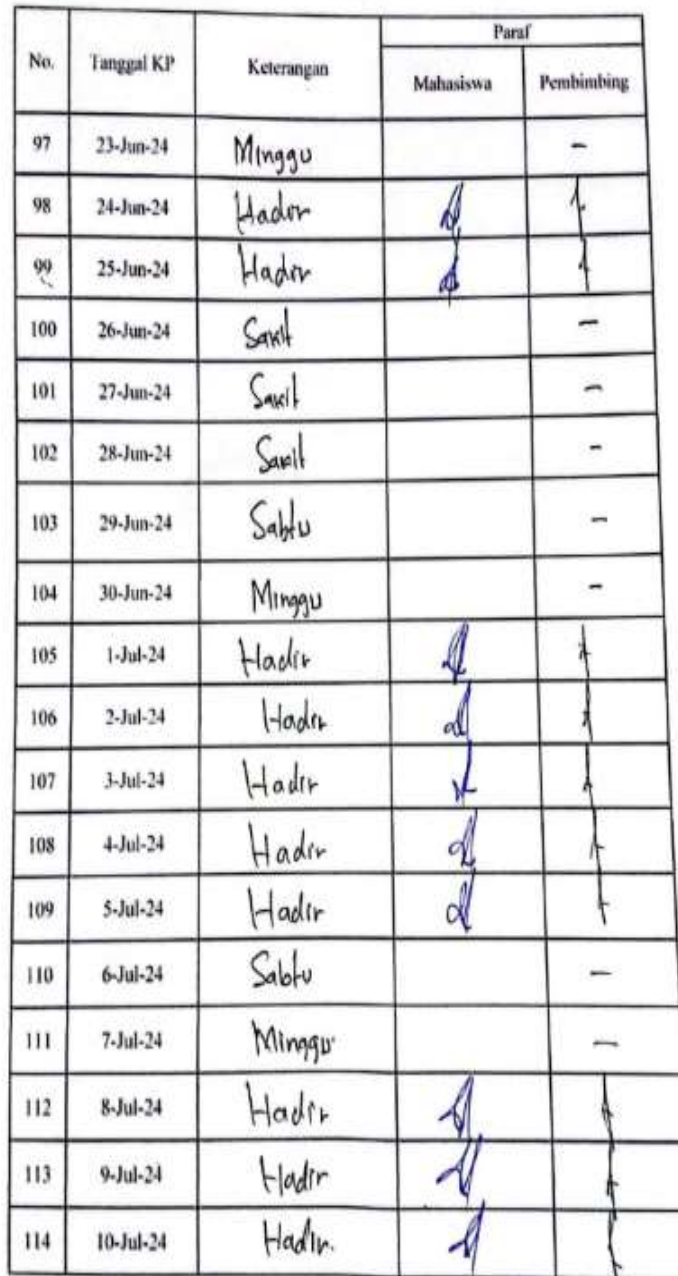 No. Tanggal KP Keterangan Paraf
Mahasiswa Pembimbing
97 23-Jun-24 Minggu -
98 24-Jun-24 Hadir
99 25-Jun-24 Hadir
100 26-Jun-24 Sakit -
101 27-Jun-24 Sakit -
102 28-Jun-24 Sakit -
103 29-Jun-24 Sabtu -
104 30-Jun-24 Minggu -
105 1-Jul-24 Hadir
106 2-Jul-24 Hadir
107 3-Jul-24 Hadir
108 4-Jul-24 Hadir
109 5-Jul-24 Hadir
110 6-Jul-24 Sabtu -
111 7-Jul-24 Minggu -
112 8-Jul-24 Hadir
113 9-Jul-24 Hadir
114 10-Jul-24 Hadir.